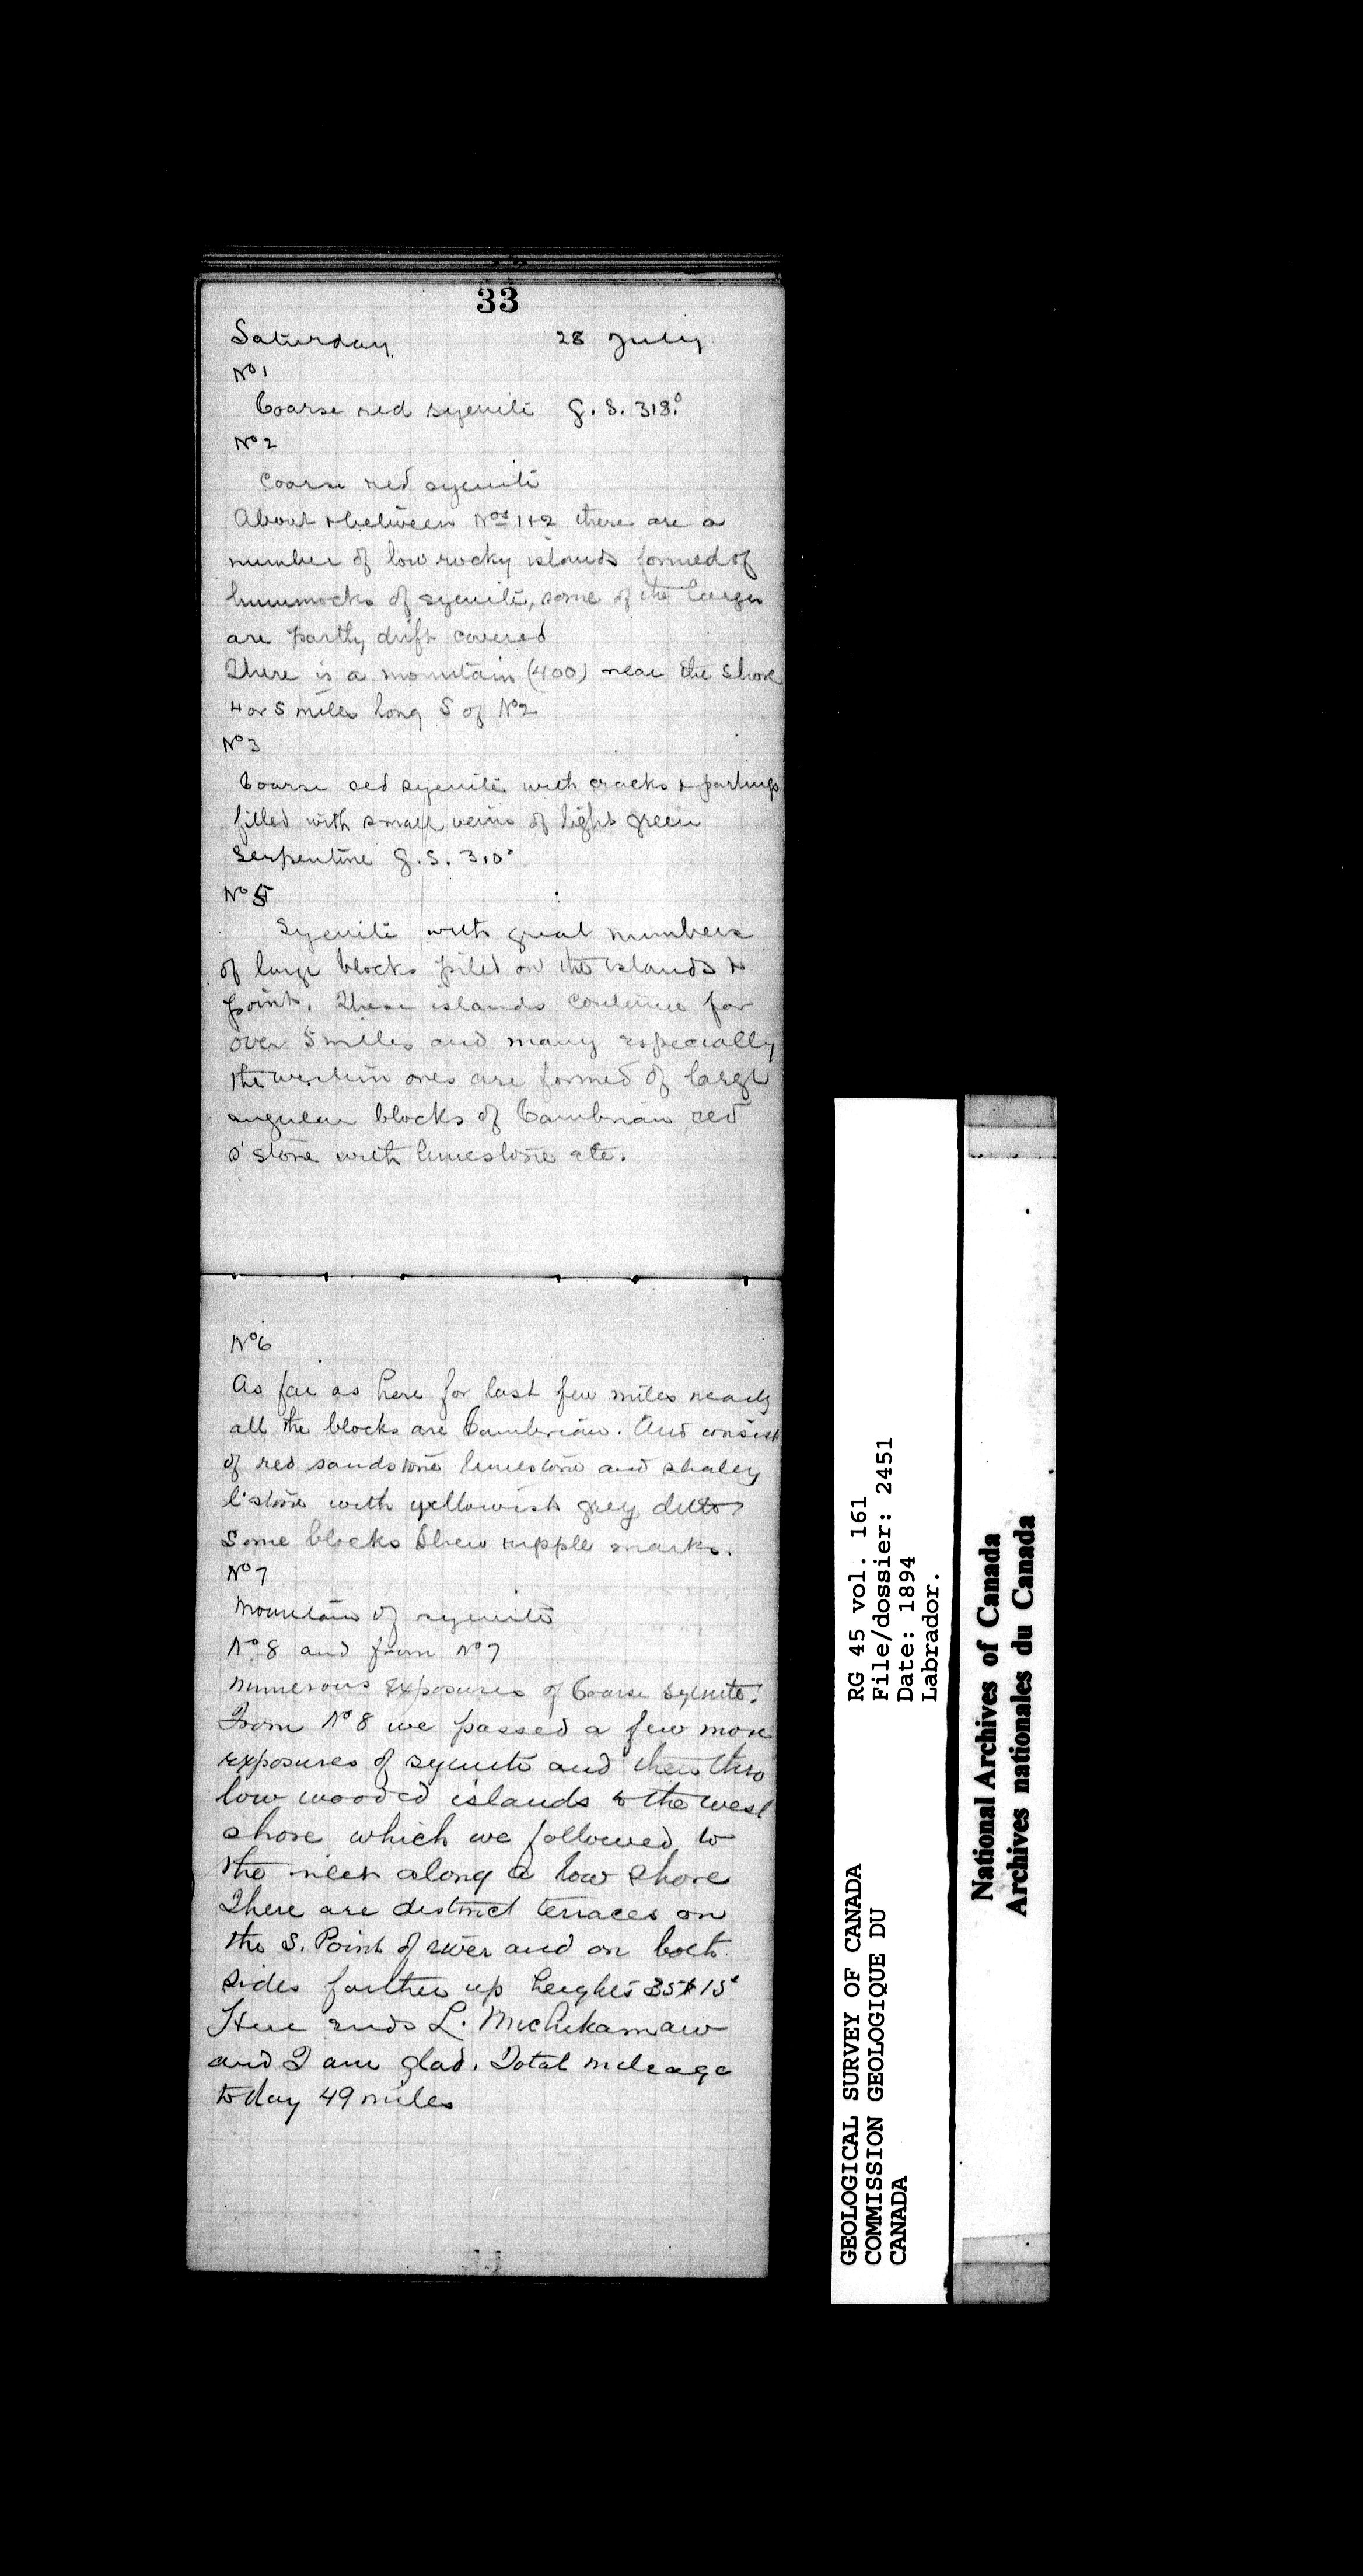 33
Saturday 28 July
No 1
Coarse red syenite g. s. 318.°
No 2
Coarse red syenite
About & between Nos 1 & 2 there are a
number of low rocky islands formed of
hummocks of syenite, some of the larger
are partly drift covered
There is a mountain (400) near the shore
4 or 5 miles long S of No 2
No 3
Coarse red syenite with cracks & partings
filled with small veins of light green
serpentine g. s. 310°
No 5
Syenite with great numbers
of large blocks piled on the islands &
point. These islands continue for
over 5 miles and many especially
the western ones are formed of large
angular blocks of Cambrian red
s'stone with limestone etc.
No 6
As far as here for last few miles nearly
all the blocks are Cambrian. And consist
of red sandstone limestone and shaley
l'stone with yellowish grey ditto
some blocks shew ripple marks.
No 7
Mountain of syenite
No 8 and from No 7
numerous exposures of Coarse syenite.
From No 8 we passed a few more
exposures of syenite and then thro
low wooded islands to the west
shore which we followed to
the river along a low shore
There are distinct terraces on
the S. Point of river and on both
sides farther up heights 35 & 15'
Here ends L. Michikamaw
and I am glad. Total mileage
today 49 miles
GEOLOGICAL SURVEY OF CANADA
COMMISSION GEOLOGIQUE DU
CANADA
RG 45 vol. 161
File/dossier: 2451
Date: 1894
Labrador.
National Archives of Canada
Archives nationales du Canada